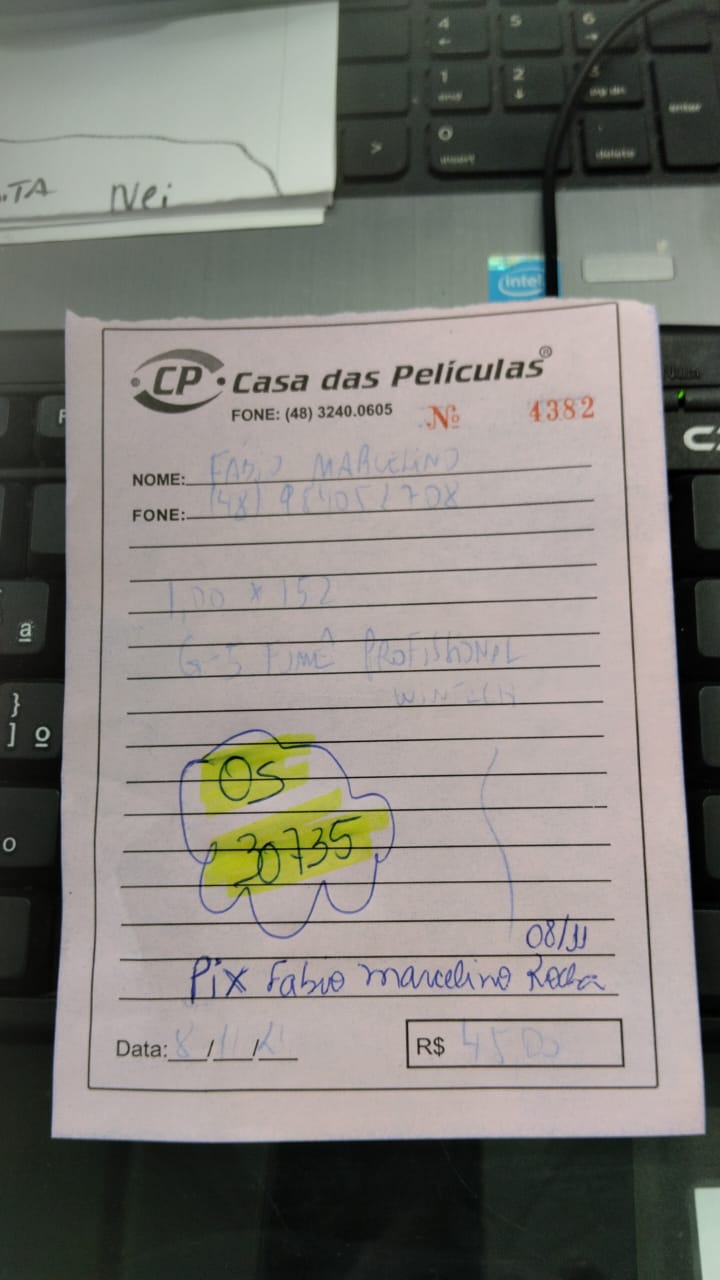 .TA Nei
4 5 6
1 2 3
end pg dn enter
0
insert delete
>
intel
CP Casa das Películas®
FONE: (48) 3240.0605 Nº 4382
NOME: FABIO MARCELINO
FONE: (48)
1,00 * 152
G-5 FUMÊ PROFISSIONAL
WINTECH
OS
30735
08/11
Pix Fabio marcelino Rocha
Data: 8/11/21 R$ 45,00
ª
}
] º